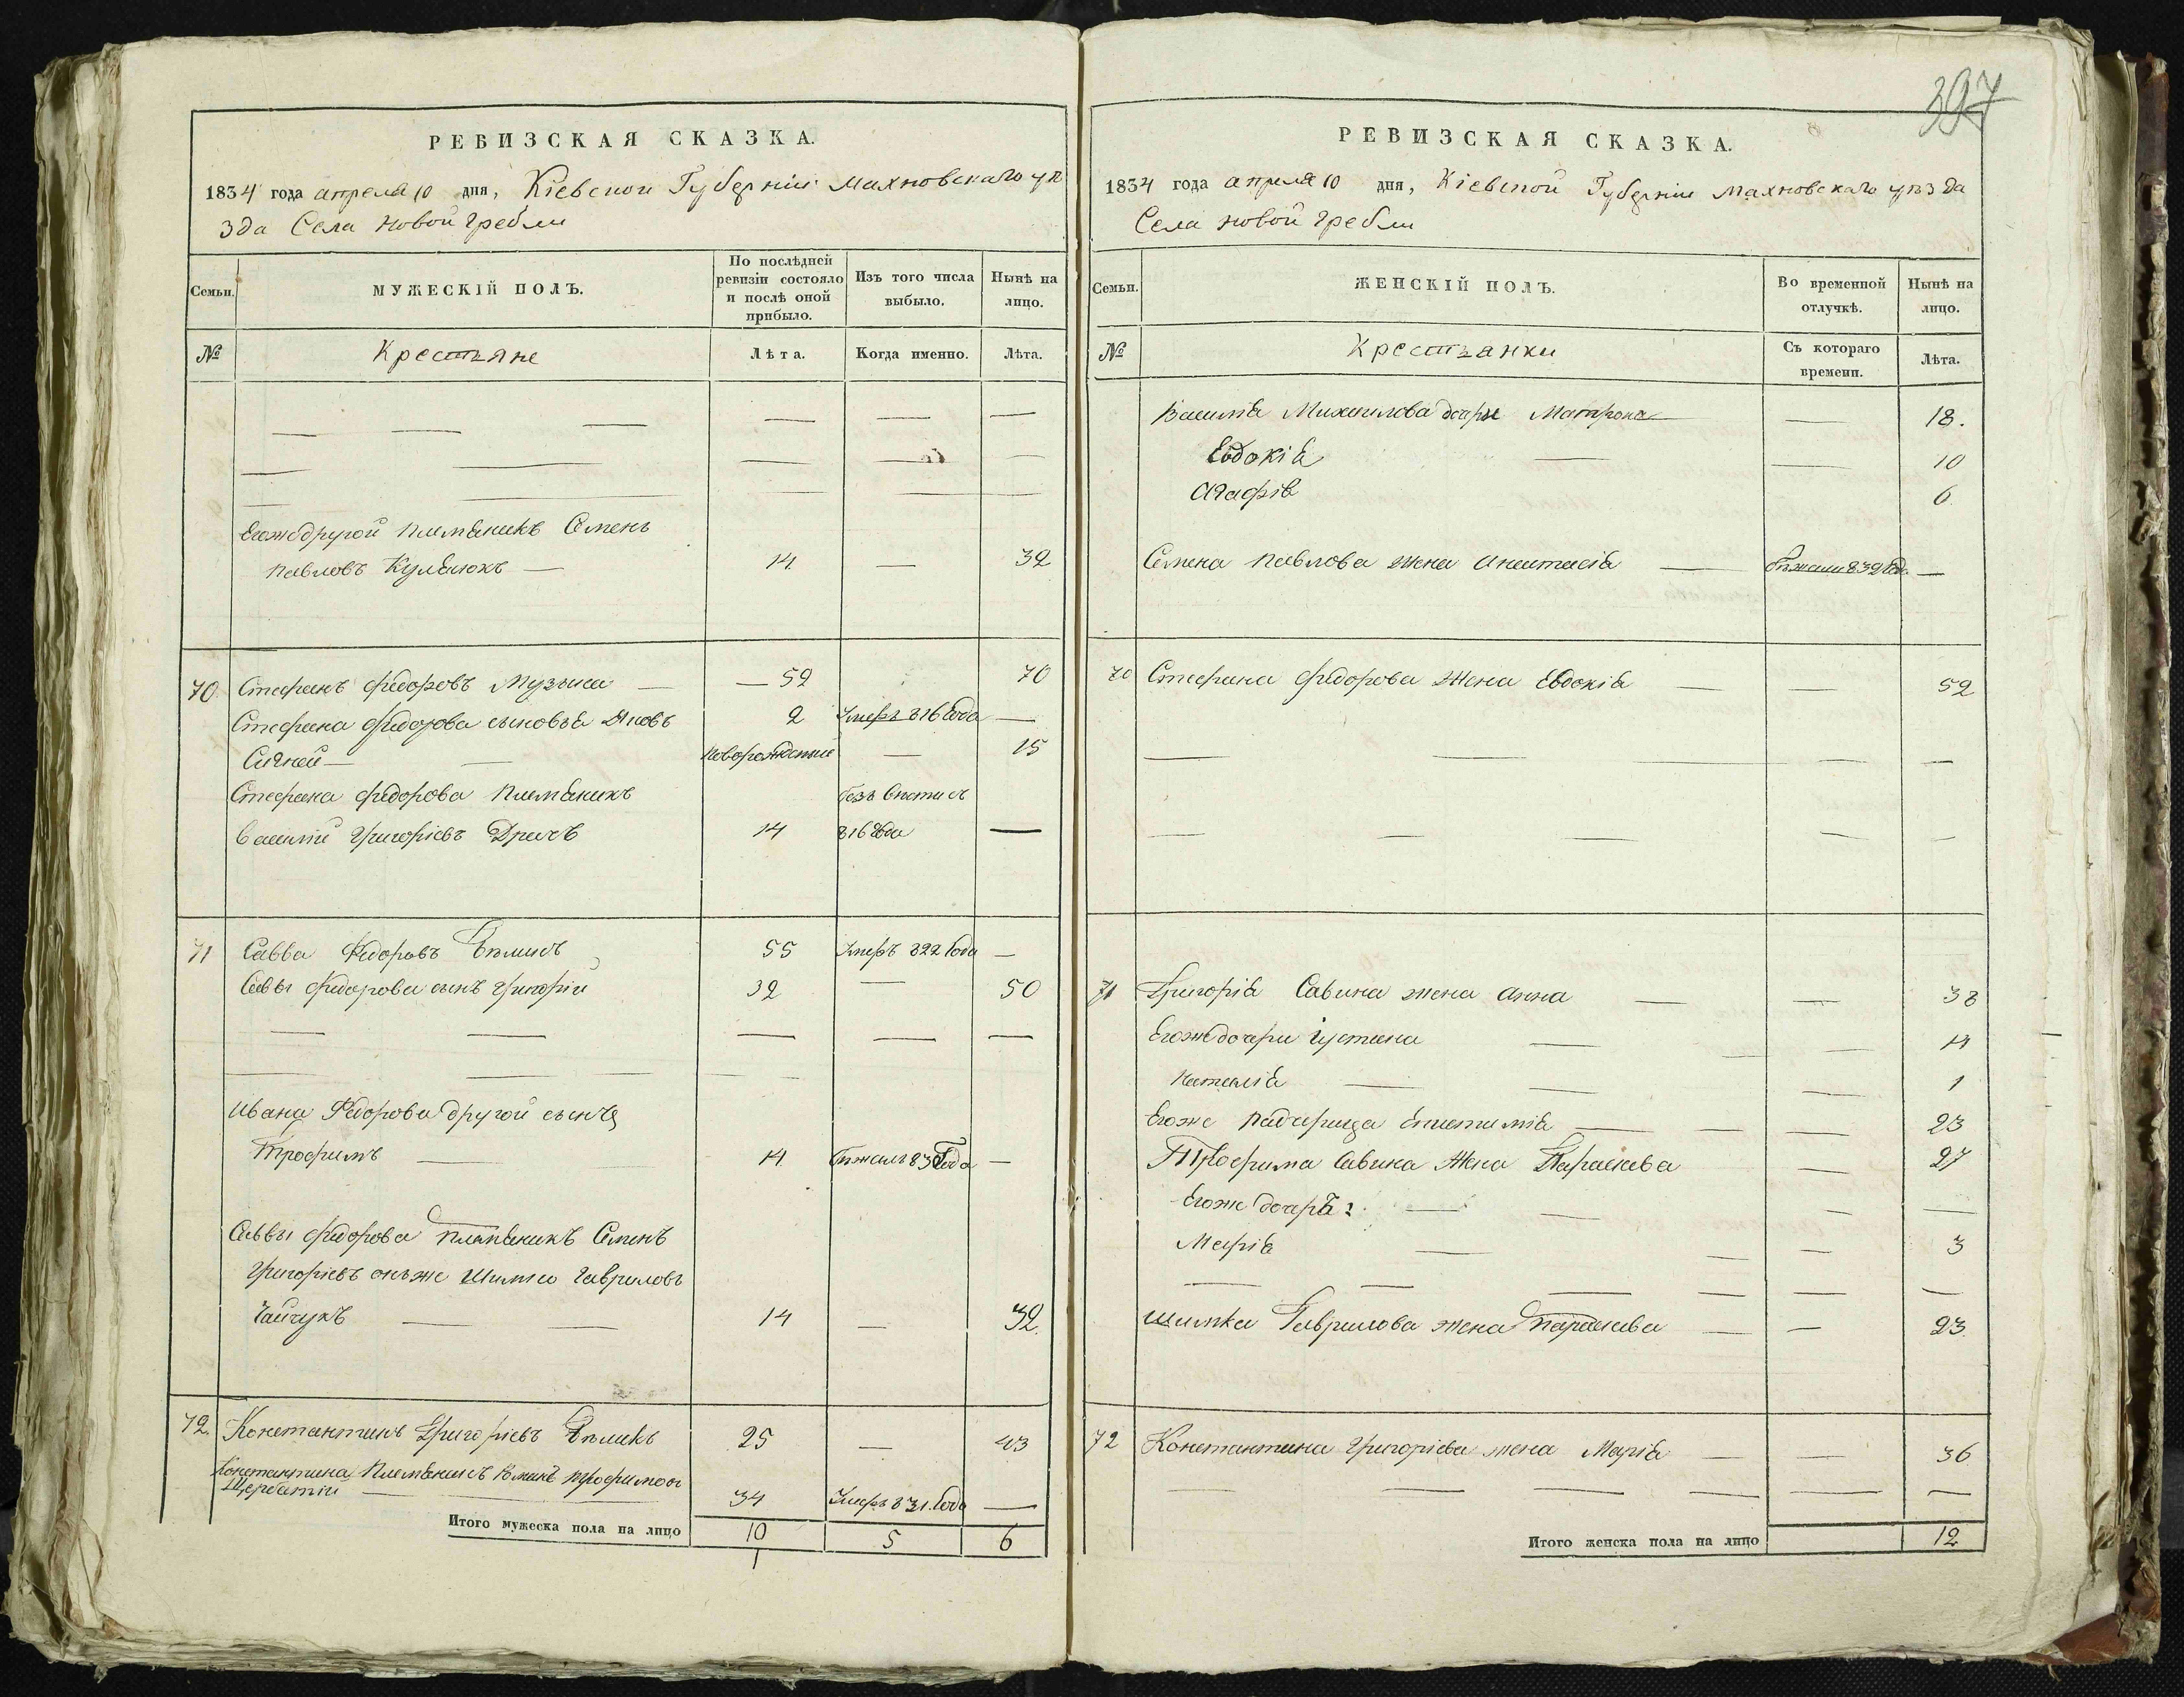 РЕВИЗСКАЯ СКАЗКА.
1834 года апреля 10 дня, Кіевской Губерніи Махновскаго уѣ
зда Села Новой Гребли
Семьи.
МУЖЕСКІЙ ПОЛЪ.
По послѣдней ревизіи состояло и послѣ оной прибыло.
Изъ того числа выбыло.
Нынѣ на лицо.
№ Крестьяне Лѣта. Когда именно. Лѣта.
— — — — — —
— — — — —
— — — — —
Егожъ другой племяникъ Семенъ
Павловъ — 14 — 32
70 Стефанъ Федоровъ Музыка — 52 70
Стефана Федорова сыновья Яковъ 2 Умеръ 816 Года —
Сидней — — новорожденные — 15
Стефана Федорова племяникъ безъ вѣсти съ
Василій Григоріевъ 14 816 Года —
71 Савва Федоровъ Бѣликъ 55 Умеръ 822 Года —
Саввы Федорова сынъ Григорій 32 — 50
— — — — —
— — — — —
Ивана Федорова другой сынъ
Трофимъ — 14 бѣжалъ 830 Года —
Саввы Федорова племяникъ Семенъ
Григоріевъ онъ же Шимко Гавриловъ
Гайчукъ — — 14 — 32.
72. Константинъ Григоріевъ Бѣликъ 25 — 43
Константина племяникъ Романъ Трофимовъ
Щербатій — 34 Умеръ 831. Года —
Итого мужеска пола на лицо 10 5 6
1
397
РЕВИЗСКАЯ СКАЗКА.
1834 года апреля 10 дня, Кіевской Губерніи Махновскаго уѣзда
Села Новой Гребли
Семьи.
ЖЕНСКІЙ ПОЛЪ.
Во временной отлучкѣ.
Нынѣ на лицо.
№ Крестьянки Съ котораго времени. Лѣта.
Василія Михайлова дочери Матрона — 18.
Евдокія — — 10
Агафія 6
Семена Павлова жена Анастасія — бѣжали 832 Года —
70 Стефана Федорова жена Евдокія — — 52
— — — — —
— — — — —
71 Григорія Савина жена Анна — — 38
Егожъ дочери Іустина — — — 14
Наталія — — — 1
Егоже падчерица — — — 23
Трофима Савина жена Параскева — 27
Егоже дочеръ: — — — —
Марія — — — 3
— — — — — —
Шимка Гаврилова жена Параскева — — 23
72 Константина Григоріева жена Марія — — 36
— — — — — —
Итого женска пола на лицо 12